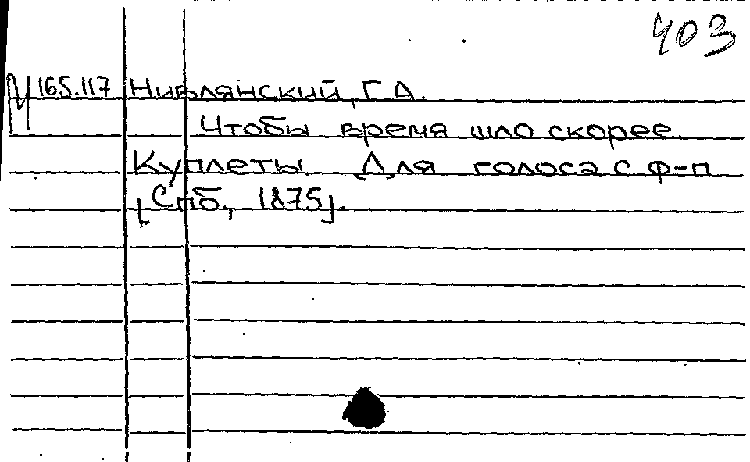 403
М 165.117 Нивлянский, Г.А.
Чтобы время шло скорее.
Куплеты. Для голоса с ф-п
[Спб., 1875].